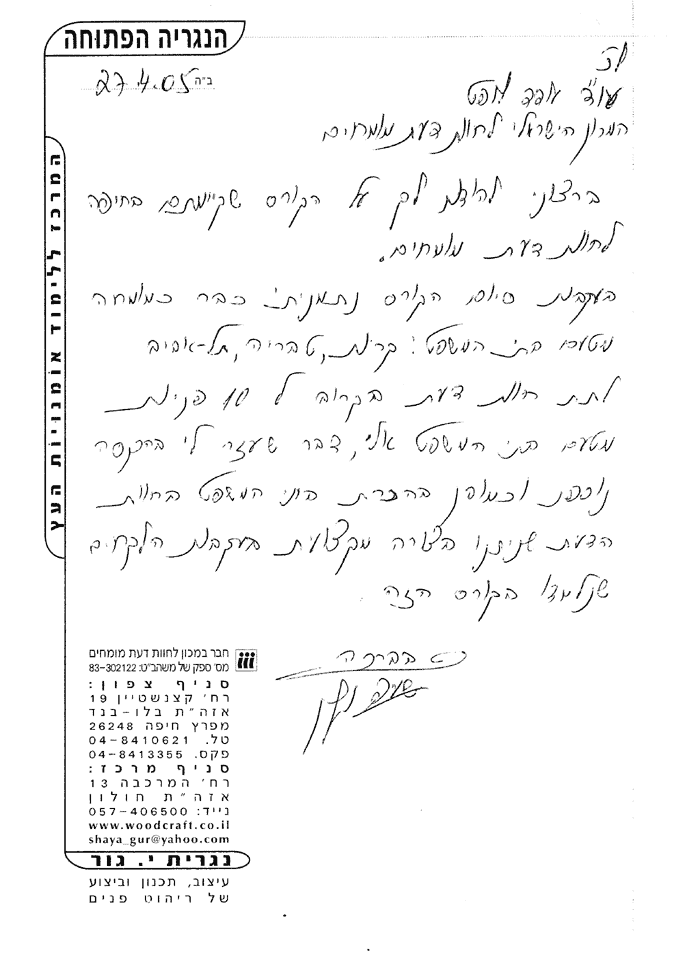 הנגריה הפתוחה
ב"ה 27.4.05
המרכז ללימוד אומנויות העץ
לכ'
עו"ד
המכון הישראלי לחוות דעת מומחים
ברצוני להודות לך על הקורס שקיימתם בחיפה
לחוות דעת מומחים.
בעקבות סיום הקורס נתמניתי כבר כמומחה
מטעם בתי המשפט: קריות, טבריה, תל-אביב
לתת חוות דעת בקרוב ל 10 פניות
מטעם בתי המשפט אלי, דבר שעזר לי בהכנסה
נוספת וכמובן בהכרת בתי המשפט בחוות
הדעת שניתנו בצורה מקצועית בעקבות הלקחים
שנלמדו בקורס הזה.
בברכה
חבר במכון לחוות דעת מומחים
מס' ספק של משהב"ט: 83-302122
סניף צפון:
רח' קצנשטיין 19
אזה"ת בלו-בנד
מפרץ חיפה 26248
טל. 04-8410621
פקס. 04-8413355
סניף מרכז:
רח' המרכבה 13
אזה"ת חולון
נייד: 057-406500
www.woodcraft.co.il
shaya_gur@yahoo.com
נגרית י. גור
עיצוב, תכנון וביצוע
של ריהוט פנים